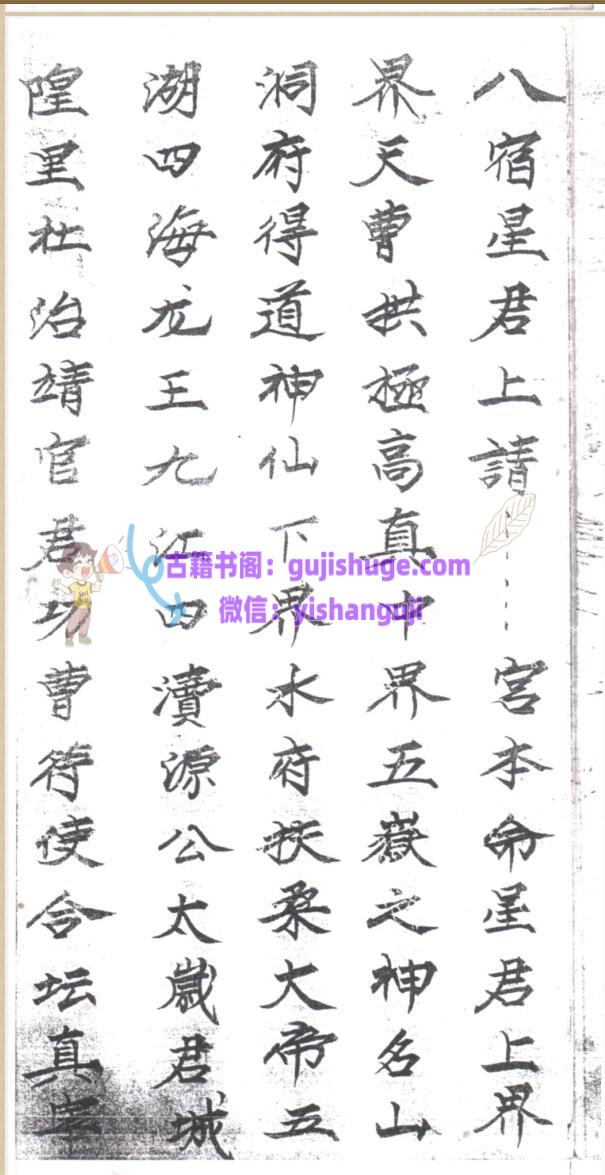 八宿星君上請⋮⋮宮本命星君上界
界天曹拱極高真中界五嶽之神名山
洞府得道神仙下界水府扶桑大帝五
湖四海龙王九江四瀆源公太嵗君城
隍里社治靖官君功曹符使合坛真宰
古籍书阁：gujishuge.com
微信：yishanguji